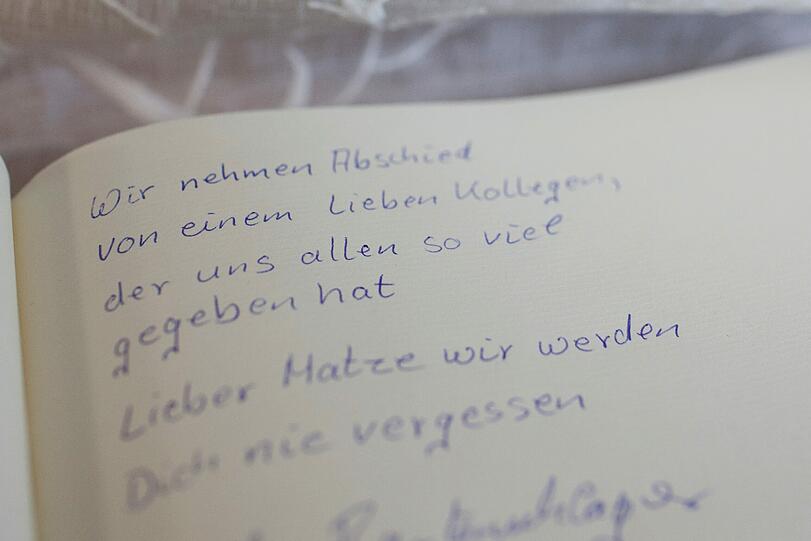 Wir nehmen Abschied
von einem Lieben Kollegen,
der uns allen so viel
gegeben hat
Lieber Matze wir werden
Dich nie vergessen